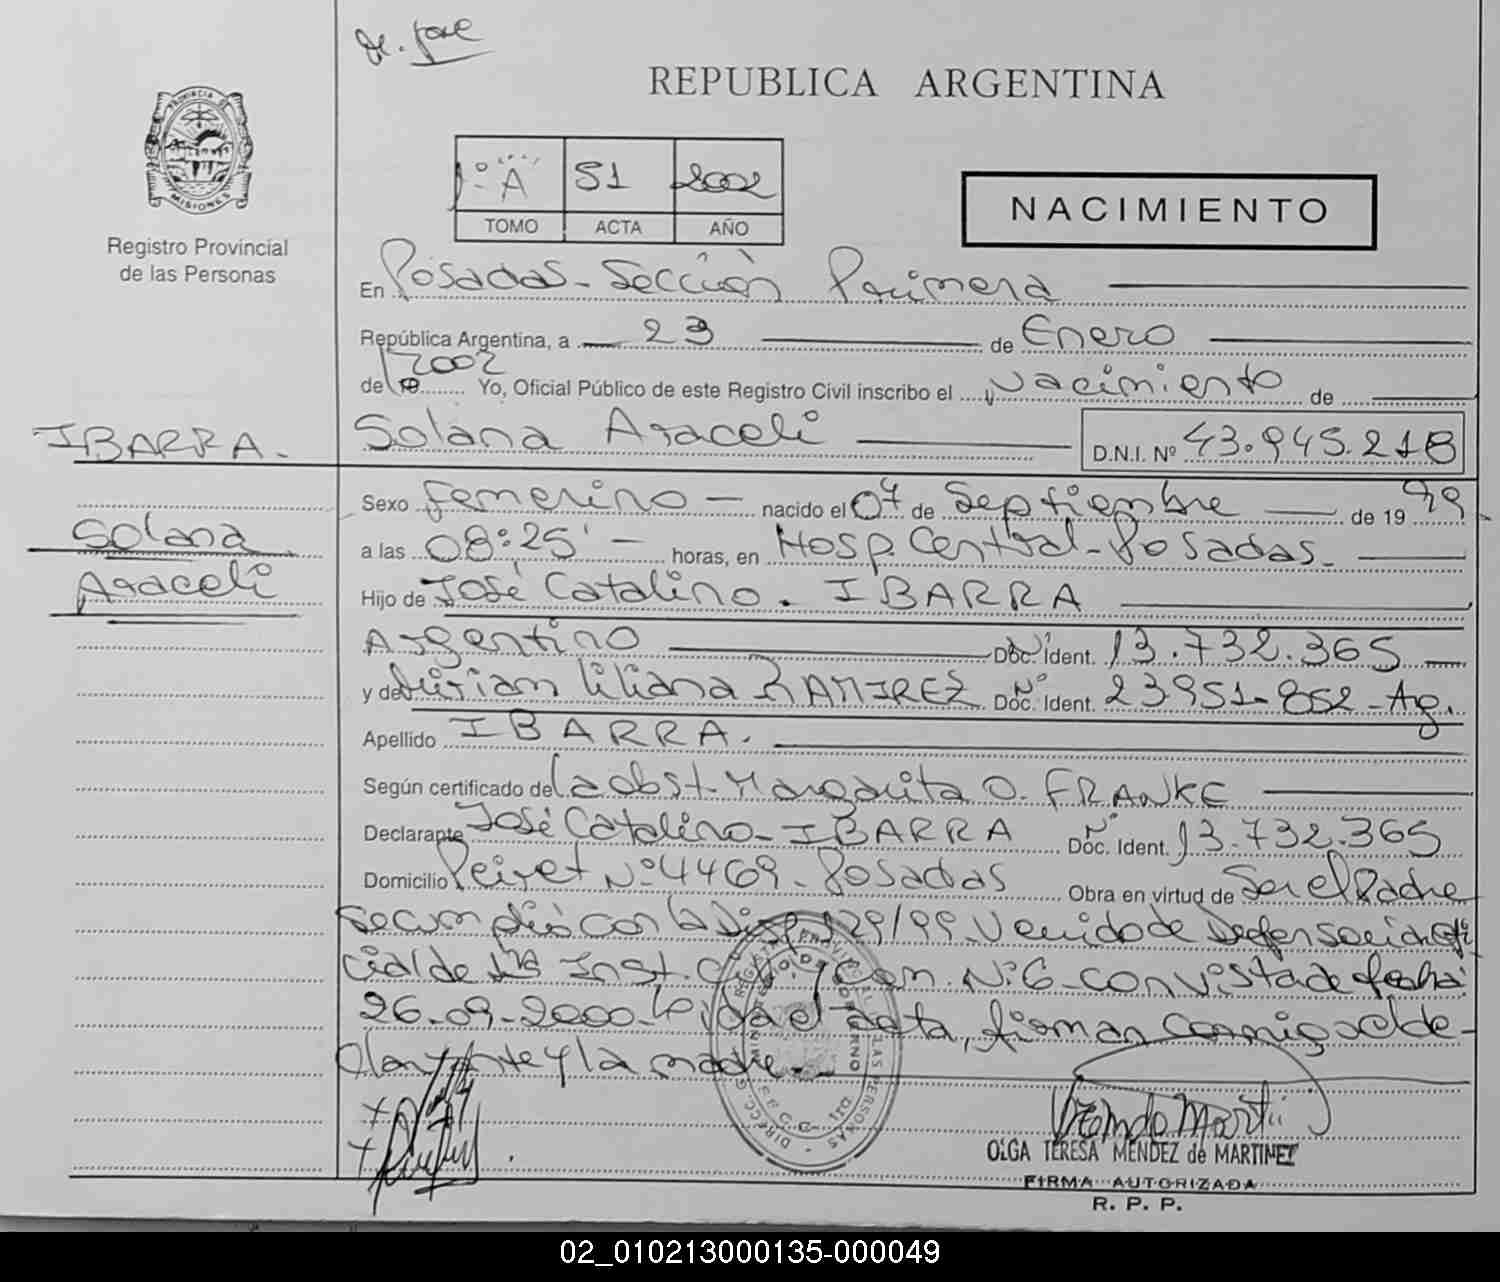 de. José
REPUBLICA ARGENTINA
PROVINCIA DE
MISIONES
Registro Provincial
de las Personas
1º "A" 51 2002
TOMO ACTA AÑO
NACIMIENTO
En Posadas - Sección Primera
República Argentina, a 23 de Enero
2002
de 19 Yo, Oficial Público de este Registro Civil inscribo el Nacimiento de
IBARRA.
Solana Araceli
D.N.I. Nº 43.945.218
Sexo femenino - nacido el 07 de Septiembre de 19 99
Solana
Araceli
a las 08:25' - horas, en Hosp. Central - Posadas.
Hijo de José Catalino. IBARRA
Argentino Nº Doc. Ident. 13.732.365
y de Miriam liliana RAMIREZ Nº Doc. Ident. 23951-852 - Ag.
Apellido IBARRA.
Según certificado de la obst. Margarita O. FRANKE
Declarante José Catalino - IBARRA Nº Doc. Ident. 13.732.365
Domicilio Peiret Nº 4469 - Posadas Obra en virtud de Ser el Padre
Se cumplió con la Disp. 129/99 - Venido de Defensoria Ofi
cial de 1ra Inst. Com. Nº 6 - con vista de fecha
26-09-2000 - Leida el acta, firman conmigo el de-
clarante y la madre -
OLGA TERESA MENDEZ de MARTINEZ
FIRMA AUTORIZADA
R. P. P.
02_010213000135-000049